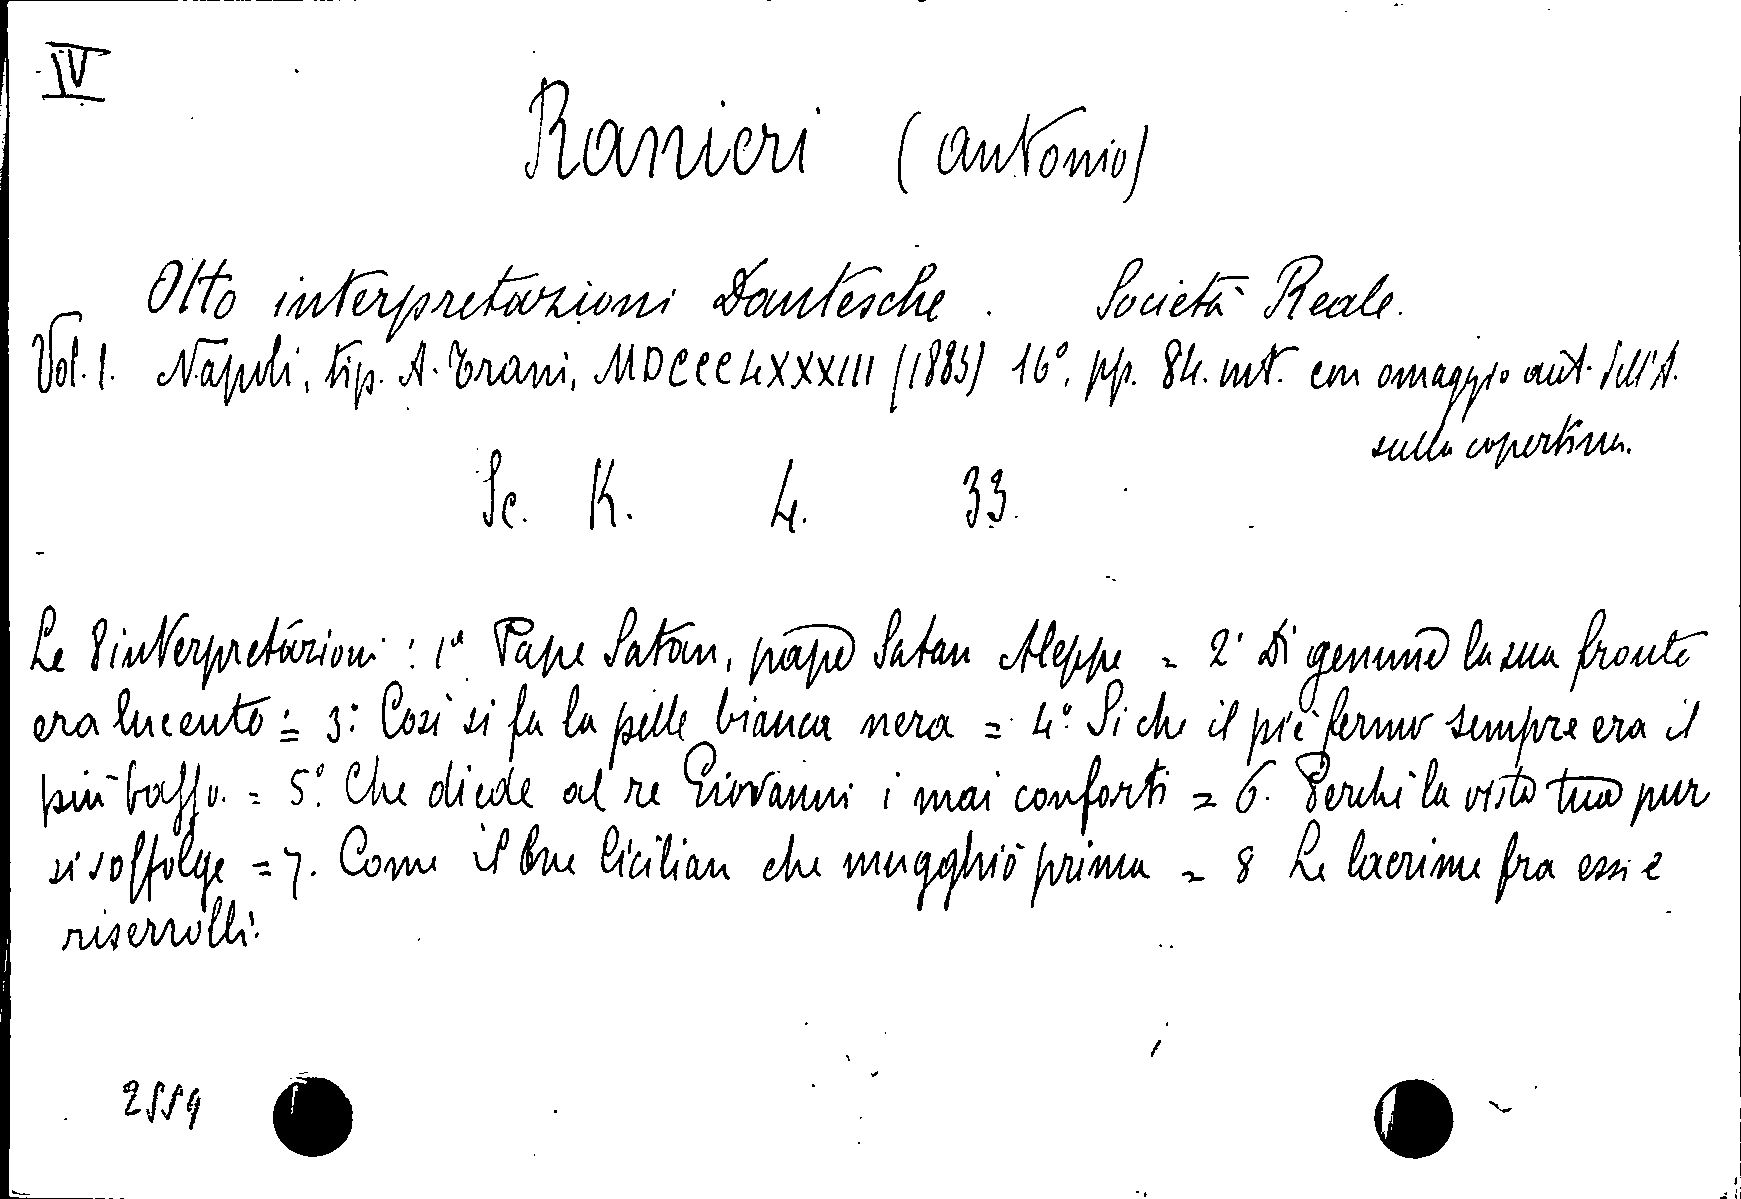 IV
Ranieri (Antonio)
Otto interpretazioni Dantesche. Società Reale.
Vol. 1. Napoli, tip. A. Trani, MDCCCLXXXIII (1883) 16°, pp. 84. int. con omaggio aut. dell'A.
sulla copertina.
Sc. K. 4. 33.
Le 8 interpretazioni: 1ª Pape Satan, pape Satan Aleppe = 2ª Di gemme la sua fronte
era lucente = 3ª: Così si fa la pelle bianca nera = 4ª Si che il piè fermo sempre era il
più basso. = 5ª. Che diede al re Giovanni i mai conforti = 6. Perchè la vista tua pur
si soffolge = 7. Come il bue Cicilian che mugghiò prima = 8 Le lacrime fra essi e
riserrolli.
2559